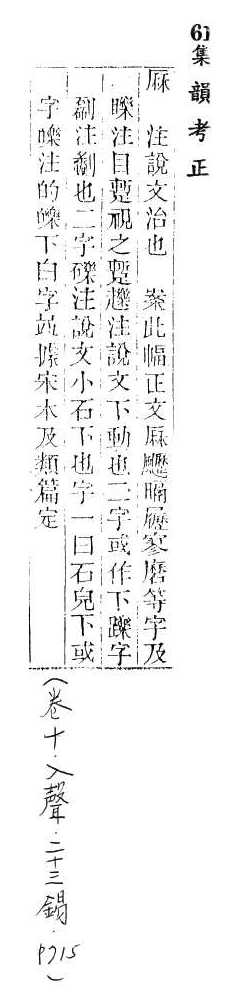 61集韻考正
厤 注說文治也 案此幅正文厤㔏曆寥磨等字及
皪注目䁝視之䁝趮注說文下動也二字或作下躒字
劙注劙也二字礫注說文小石下也字一曰石皃下或
字皪注的皪下白字並據宋本及類篇定
(卷十·入聲·二十三錫·P715)